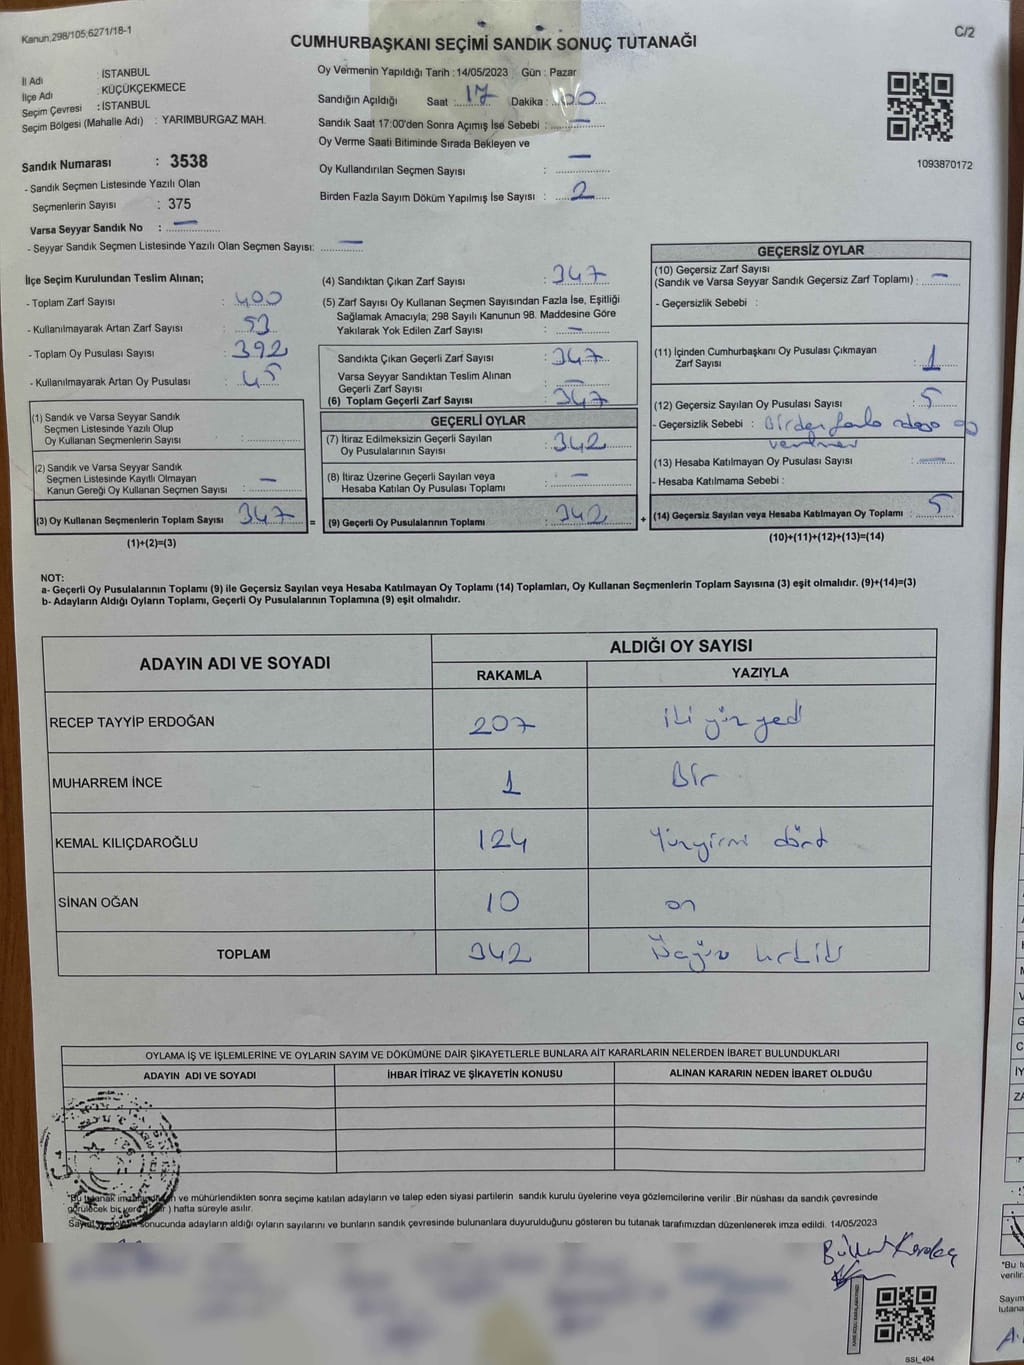 Kanun;298/105;6271/18-1
C/2
CUMHURBAŞKANI SEÇİMİ SANDIK SONUÇ TUTANAĞI
İl Adı : İSTANBUL
İlçe Adı : KÜÇÜKÇEKMECE
Seçim Çevresi : İSTANBUL
Seçim Bölgesi (Mahalle Adı) : YARIMBURGAZ MAH.
Sandık Numarası : 3538
- Sandık Seçmen Listesinde Yazılı Olan
Seçmenlerin Sayısı : 375
Varsa Seyyar Sandık No : —
- Seyyar Sandık Seçmen Listesinde Yazılı Olan Seçmen Sayısı: —
Oy Vermenin Yapıldığı Tarih : 14/05/2023 Gün : Pazar
Sandığın Açıldığı Saat : 17 Dakika : 00
Sandık Saat 17:00'den Sonra Açımış İse Sebebi : —
Oy Verme Saati Bitiminde Sırada Bekleyen ve
Oy Kullandırılan Seçmen Sayısı : —
Birden Fazla Sayım Döküm Yapılmış İse Sayısı : 2
1093870172
İlçe Seçim Kurulundan Teslim Alınan;
- Toplam Zarf Sayısı : 400
- Kullanılmayarak Artan Zarf Sayısı : 53
- Toplam Oy Pusulası Sayısı : 392
- Kullanılmayarak Artan Oy Pusulası : 45
(1) Sandık ve Varsa Seyyar Sandık
Seçmen Listesinde Yazılı Olup
Oy Kullanan Seçmenlerin Sayısı :
(2) Sandık ve Varsa Seyyar Sandık
Seçmen Listesinde Kayıtlı Olmayan
Kanun Gereği Oy Kullanan Seçmen Sayısı : —
(3) Oy Kullanan Seçmenlerin Toplam Sayısı : 347 =
(1)+(2)=(3)
(4) Sandıktan Çıkan Zarf Sayısı : 347
(5) Zarf Sayısı Oy Kullanan Seçmen Sayısından Fazla İse, Eşitliği
Sağlamak Amacıyla; 298 Sayılı Kanunun 98. Maddesine Göre
Yakılarak Yok Edilen Zarf Sayısı : —
Sandıkta Çıkan Geçerli Zarf Sayısı : 347
Varsa Seyyar Sandıktan Teslim Alınan
Geçerli Zarf Sayısı : —
(6) Toplam Geçerli Zarf Sayısı : 347
GEÇERLİ OYLAR
(7) İtiraz Edilmeksizin Geçerli Sayılan
Oy Pusulalarının Sayısı : 342
(8) İtiraz Üzerine Geçerli Sayılan veya
Hesaba Katılan Oy Pusulası Toplamı : —
(9) Geçerli Oy Pusulalarının Toplamı : 342 +
GEÇERSİZ OYLAR
(10) Geçersiz Zarf Sayısı
(Sandık ve Varsa Seyyar Sandık Geçersiz Zarf Toplamı) : —
- Geçersizlik Sebebi :
(11) İçinden Cumhurbaşkanı Oy Pusulası Çıkmayan
Zarf Sayısı : 1
(12) Geçersiz Sayılan Oy Pusulası Sayısı : 5
- Geçersizlik Sebebi : Birden fazla
(13) Hesaba Katılmayan Oy Pusulası Sayısı : —
- Hesaba Katılmama Sebebi :
(14) Geçersiz Sayılan veya Hesaba Katılmayan Oy Toplamı : 5
(10)+(11)+(12)+(13)=(14)
NOT:
a- Geçerli Oy Pusulalarının Toplamı (9) ile Geçersiz Sayılan veya Hesaba Katılmayan Oy Toplamı (14) Toplamları, Oy Kullanan Seçmenlerin Toplam Sayısına (3) eşit olmalıdır. (9)+(14)=(3)
b- Adayların Aldığı Oyların Toplamı, Geçerli Oy Pusulalarının Toplamına (9) eşit olmalıdır.
ADAYIN ADI VE SOYADI ALDIĞI OY SAYISI
RAKAMLA YAZIYLA
RECEP TAYYİP ERDOĞAN 207 iki yüz yedi
MUHARREM İNCE 1 Bir
KEMAL KILIÇDAROĞLU 124 Yüzyirmi dört
SİNAN OĞAN 10 on
TOPLAM 342 Üçyüz kırkiki
OYLAMA İŞ VE İŞLEMLERİNE VE OYLARIN SAYIM VE DÖKÜMÜNE DAİR ŞİKAYETLERLE BUNLARA AİT KARARLARIN NELERDEN İBARET BULUNDUKLARI
ADAYIN ADI VE SOYADI İHBAR İTİRAZ VE ŞİKAYETİN KONUSU ALINAN KARARIN NEDEN İBARET OLDUĞU
"Bu tutanak ve mühürlendikten sonra seçime katılan adayların ve talep eden siyasi partilerin sandık kurulu üyelerine veya gözlemcilerine verilir .Bir nüshası da sandık çevresinde
görülecek bir yere ) hafta süreyle asılır.
sonucunda adayların aldığı oyların sayılarını ve bunların sandık çevresinde bulunanlara duyurulduğunu gösteren bu tutanak tarafımızdan düzenlenerek imza edildi. 14/05/2023
SSI_404
"Bu
verilir.
Sayım
tutana